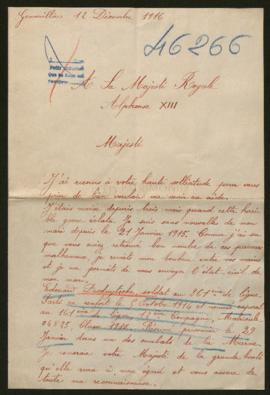 Gennevilliers 12 Décembre 1916
46266
A Sa Majesté Royale
Alphonse XIII
Majesté
J'ai recours à votre haute sollicitude pour vous
prier de bien vouloir me venir en aide.
J'étais marié depuis trois mois quand cette horri
ble guerre éclata. Je suis sans nouvelle de mon
mari depuis le 21 Janvier 1915. Comme j'ai su
que vous aviez retrouvé bon nombre de ces pauvres
malheureux, je mets tout en confiance en vous
et je me permets de vous envoyer l'état civil de
mon mari.
Edouard soldat au 261e de ligne
Parti en renfort le 6 Octobre 1914 et
au 161e de ligne Compagnie, Matricule
Classe prisonnier le 29
Janvier dans un des combats de la Marne.
Je remercie votre Majesté de la grande bonté
qu'elle aura à mon égard et vous assure de
toute ma reconnaissance.